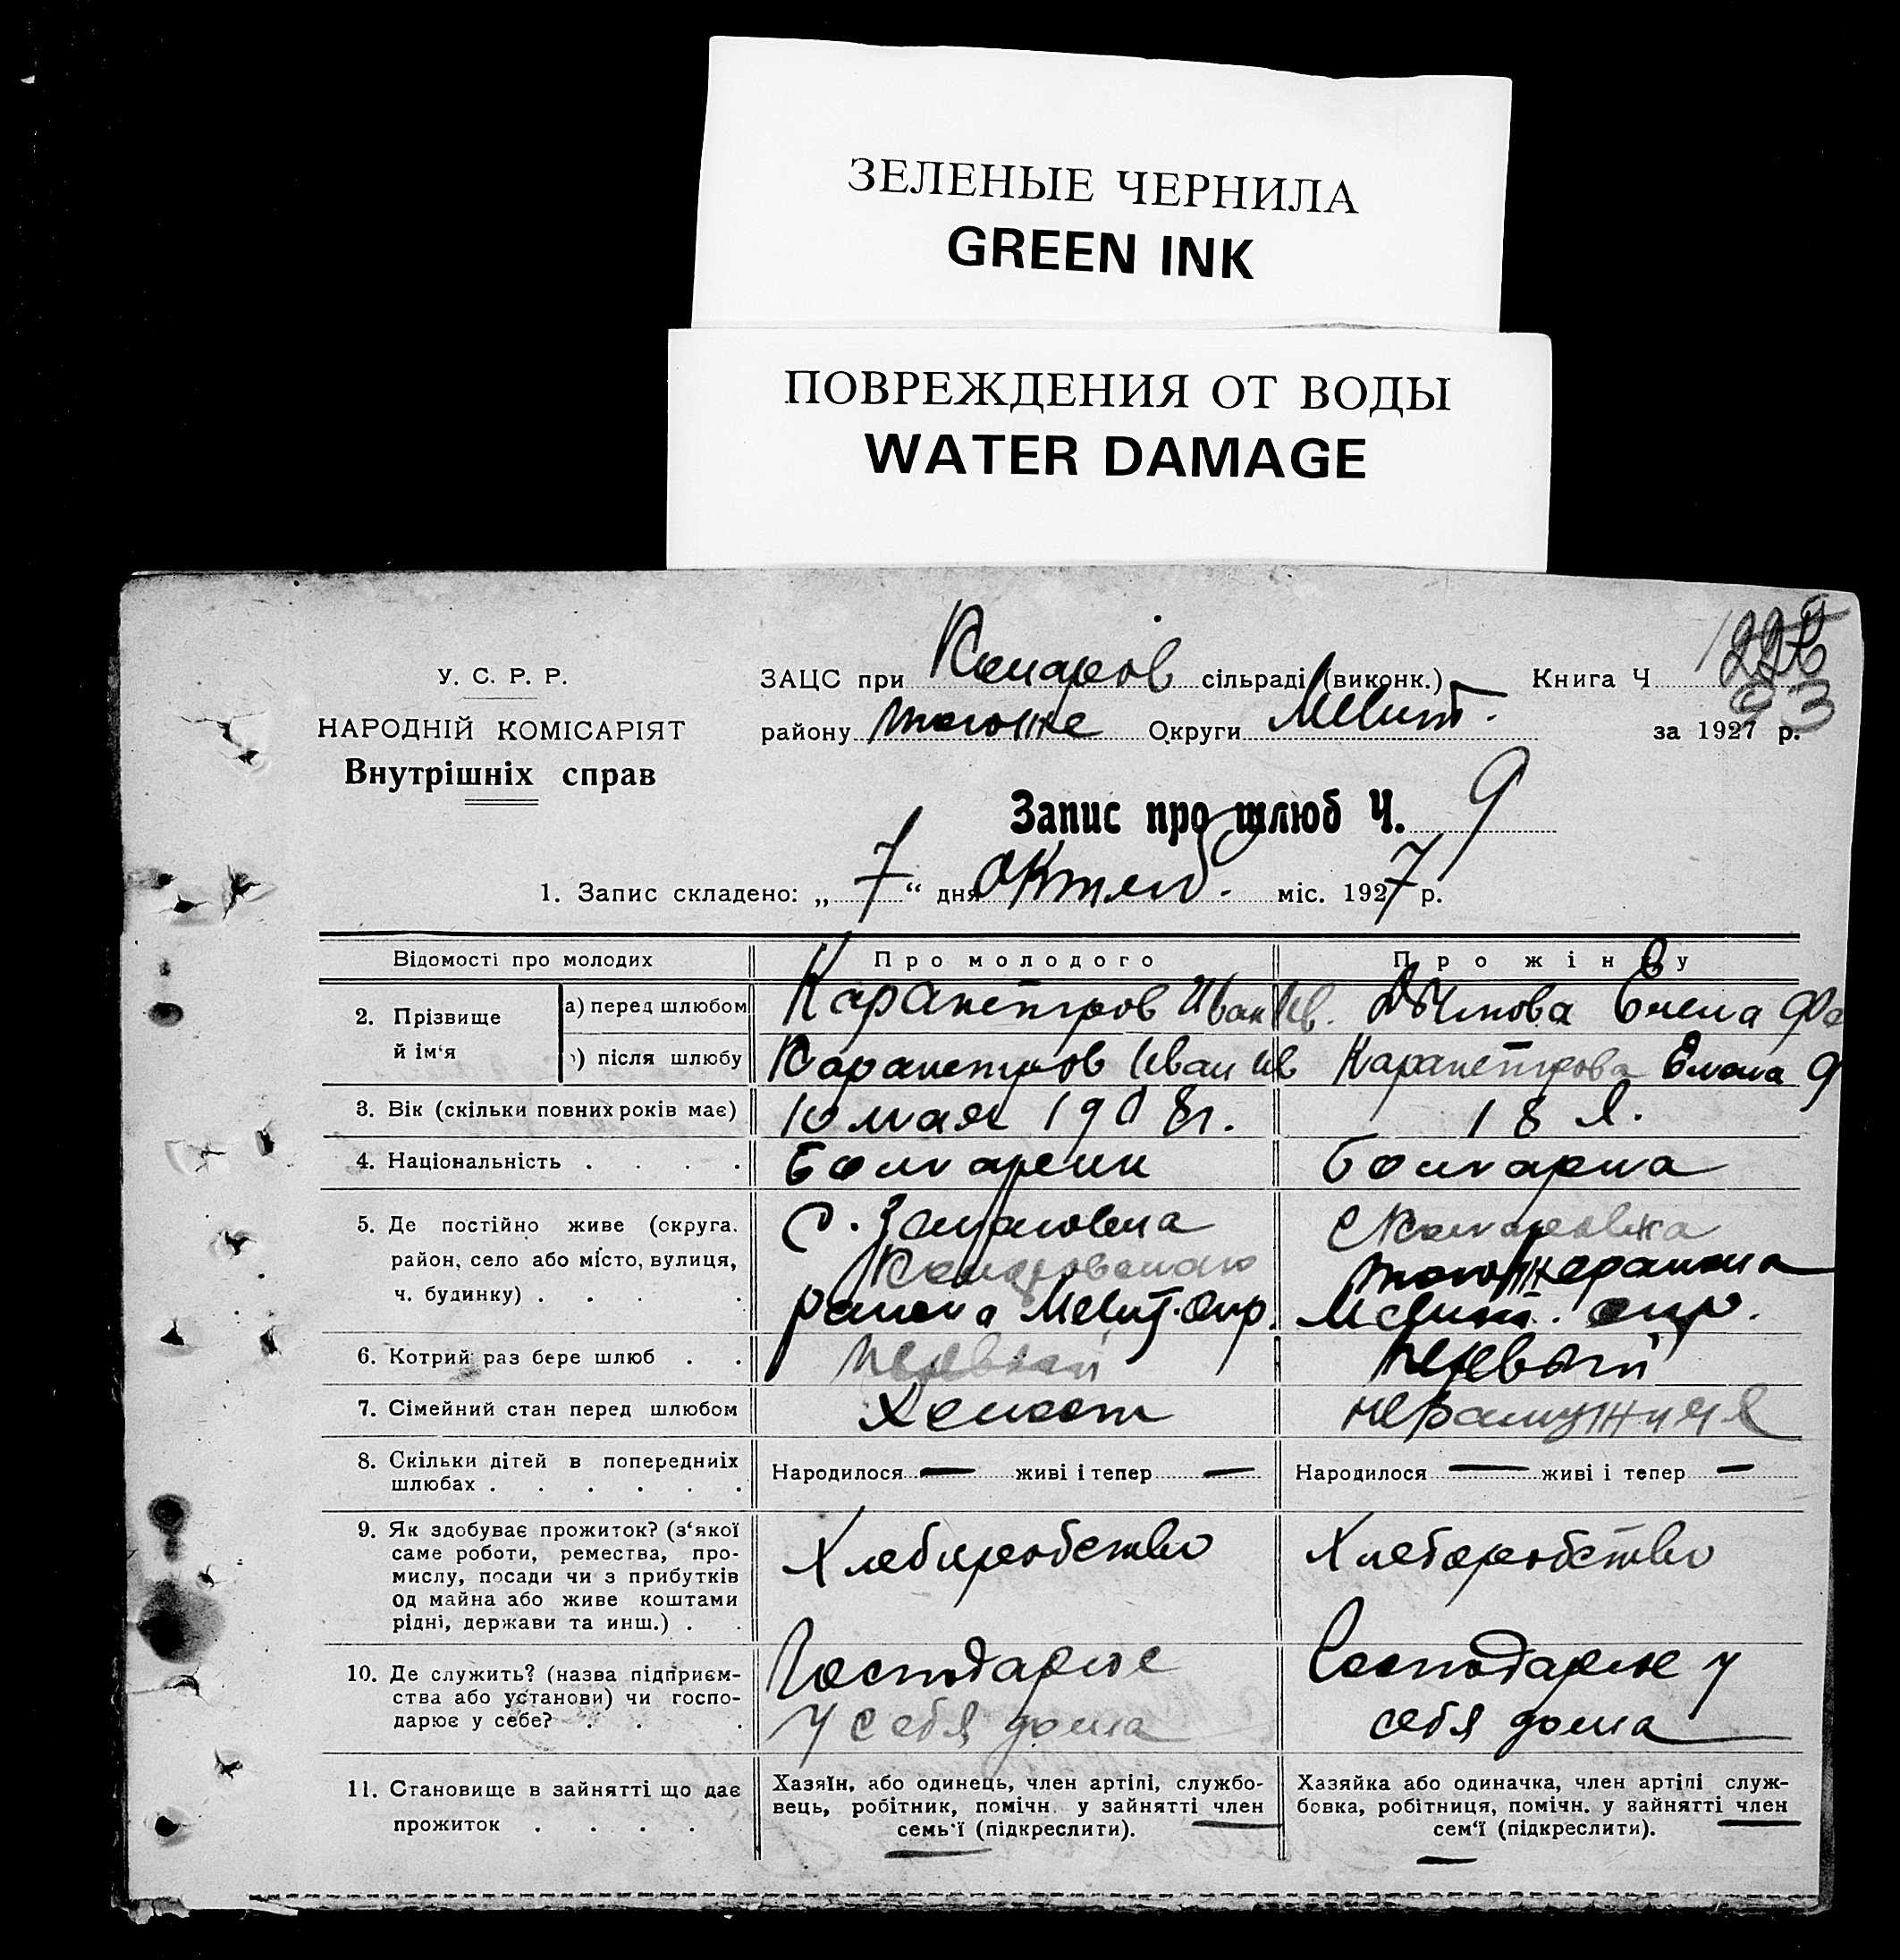 ЗЕЛЕНЫЕ ЧЕРНИЛА
GREEN INK
ПОВРЕЖДЕНИЯ ОТ ВОДЫ
WATER DAMAGE
У. С. Р. Р.
НАРОДНІЙ КОМІСАРІЯТ
Внутрішніх справ
ЗАЦС при Комаров сільраді (виконк.) Книга Ч
93
району тогоже Округи Мелит. за 1927 р.
Запис про шлюб Ч. 9
1. Запис складено: „ 7 “ дня октяб. міс. 1927 р.
Відомості про молодих Про молодого Про жінку
2. Прізвище й ім'я
а) перед шлюбом Карапетров Иван Ив. Елена Фе
) після шлюбу Карапетров Иван Ив Карапетрова Елена Ф
3. Вік (скільки повних років має) 10 мая 1908 г. 18 л.
4. Національність . . . . Болгарин Болгарка
5. Де постійно живе (округа, район, село або місто, вулиця, ч. будинку) . . . .
с.
района Мелит. окр.
с Комаровка
тогоже района
Мелит. окр.
6. Котрий раз бере шлюб . . Первый Первый
7. Сімейний стан перед шлюбом Холост незамужняя
8. Скільки дітей в попередниіх шлюбах . . . . . . Народилося — живі і тепер — Народилося — живі і тепер —
9. Як здобуває прожиток? (з‘якої саме роботи, ремества, промислу, посади чи з прибутків од майна або живе коштами рідні, держави та инш.) . .
Хлеборобство Хлеборобство
10. Де служить? (назва підприємства або установи) чи господарює у себе? . . .
Господарює
у себя дома
Господарює у
себя дома
11. Становище в зайнятті що дає прожиток . . . .
Хазяїн, або одинець, член артілі, службовець, робітник, помічн. у зайнятті член семь‘ї (підкреслити).
Хазяйка або одиначка, член артілі службовка, робітниця, помічн. у зайнятті член сем‘ї (підкреслити).